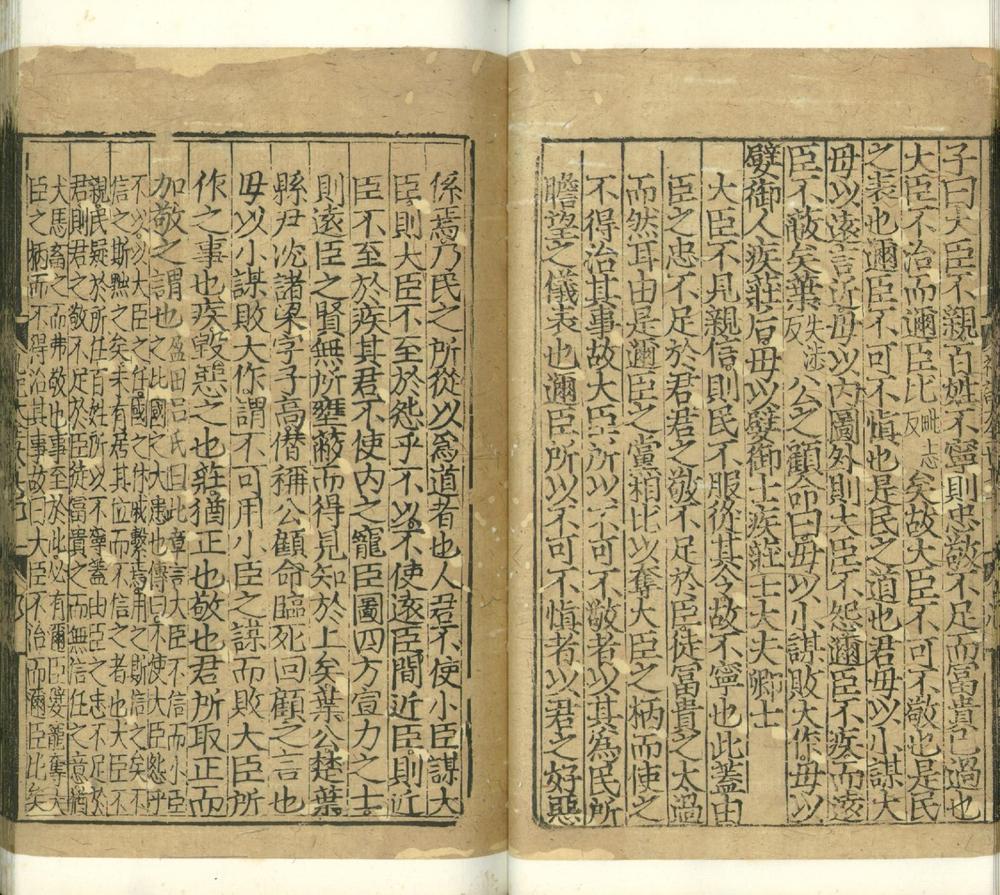 子曰大臣不親百姓不寧則忠敬不足而富貴已過也
大臣不治而邇臣比毗志反矣故大臣不可不敬也是民
之表也邇臣不可不慎也是民之道也君毋以小謀大
毋以遠言近毋以内圖外則大臣不怨邇臣不疾而遠
臣不蔽矣葉失涉反公之顧命曰毋以小謀敗大作毋以
嬖御人疾莊后毋以嬖御士疾莊士大夫卿士
大臣不見親信則民不服從其令故不寧也此蓋由
臣之忠不足於君君之敬不足於臣徒富貴之太過
而然耳由是邇臣之黨相比以奪大臣之柄而使之
不得治其事故大臣所以不可不敬者以其為民所
瞻望之儀表也邇臣所以不可不慎者以君之好惡
係焉乃民之所從以為道者也人君不使小臣謀大
臣則大臣不至於怨乎不以不使遠臣間近臣則近
臣不至於疾其君不使内之寵臣圖四方宣力之士
則遠臣之賢無所壅蔽而得見知於上矣葉公楚葉
縣尹沈諸梁字子高僭稱公顧命臨死回顧之言也
毋以小謀敗大作謂不可用小臣之謀而敗大臣所
作之事也疾毀惡之也莊猶正也敬也君所取正而
加敬之謂也盈田呂氏曰此章言大臣不信而小臣
之比國之大患也傳曰不使大臣怨乎
不以以大臣之任國之休戚繫焉用之則信之矣不
信之斯黜之矣未有居其位而不信之者也大臣不
親民疑於所任百姓所以不寧蓋由臣之忠不足於
君則君之敬不足於臣徒富貴之而無信任之意猶
犬馬畜之而弗敬也事至於此必有邇臣嬖寵奪大
臣之柄而不得治其事故曰大臣不治而邇臣比矣